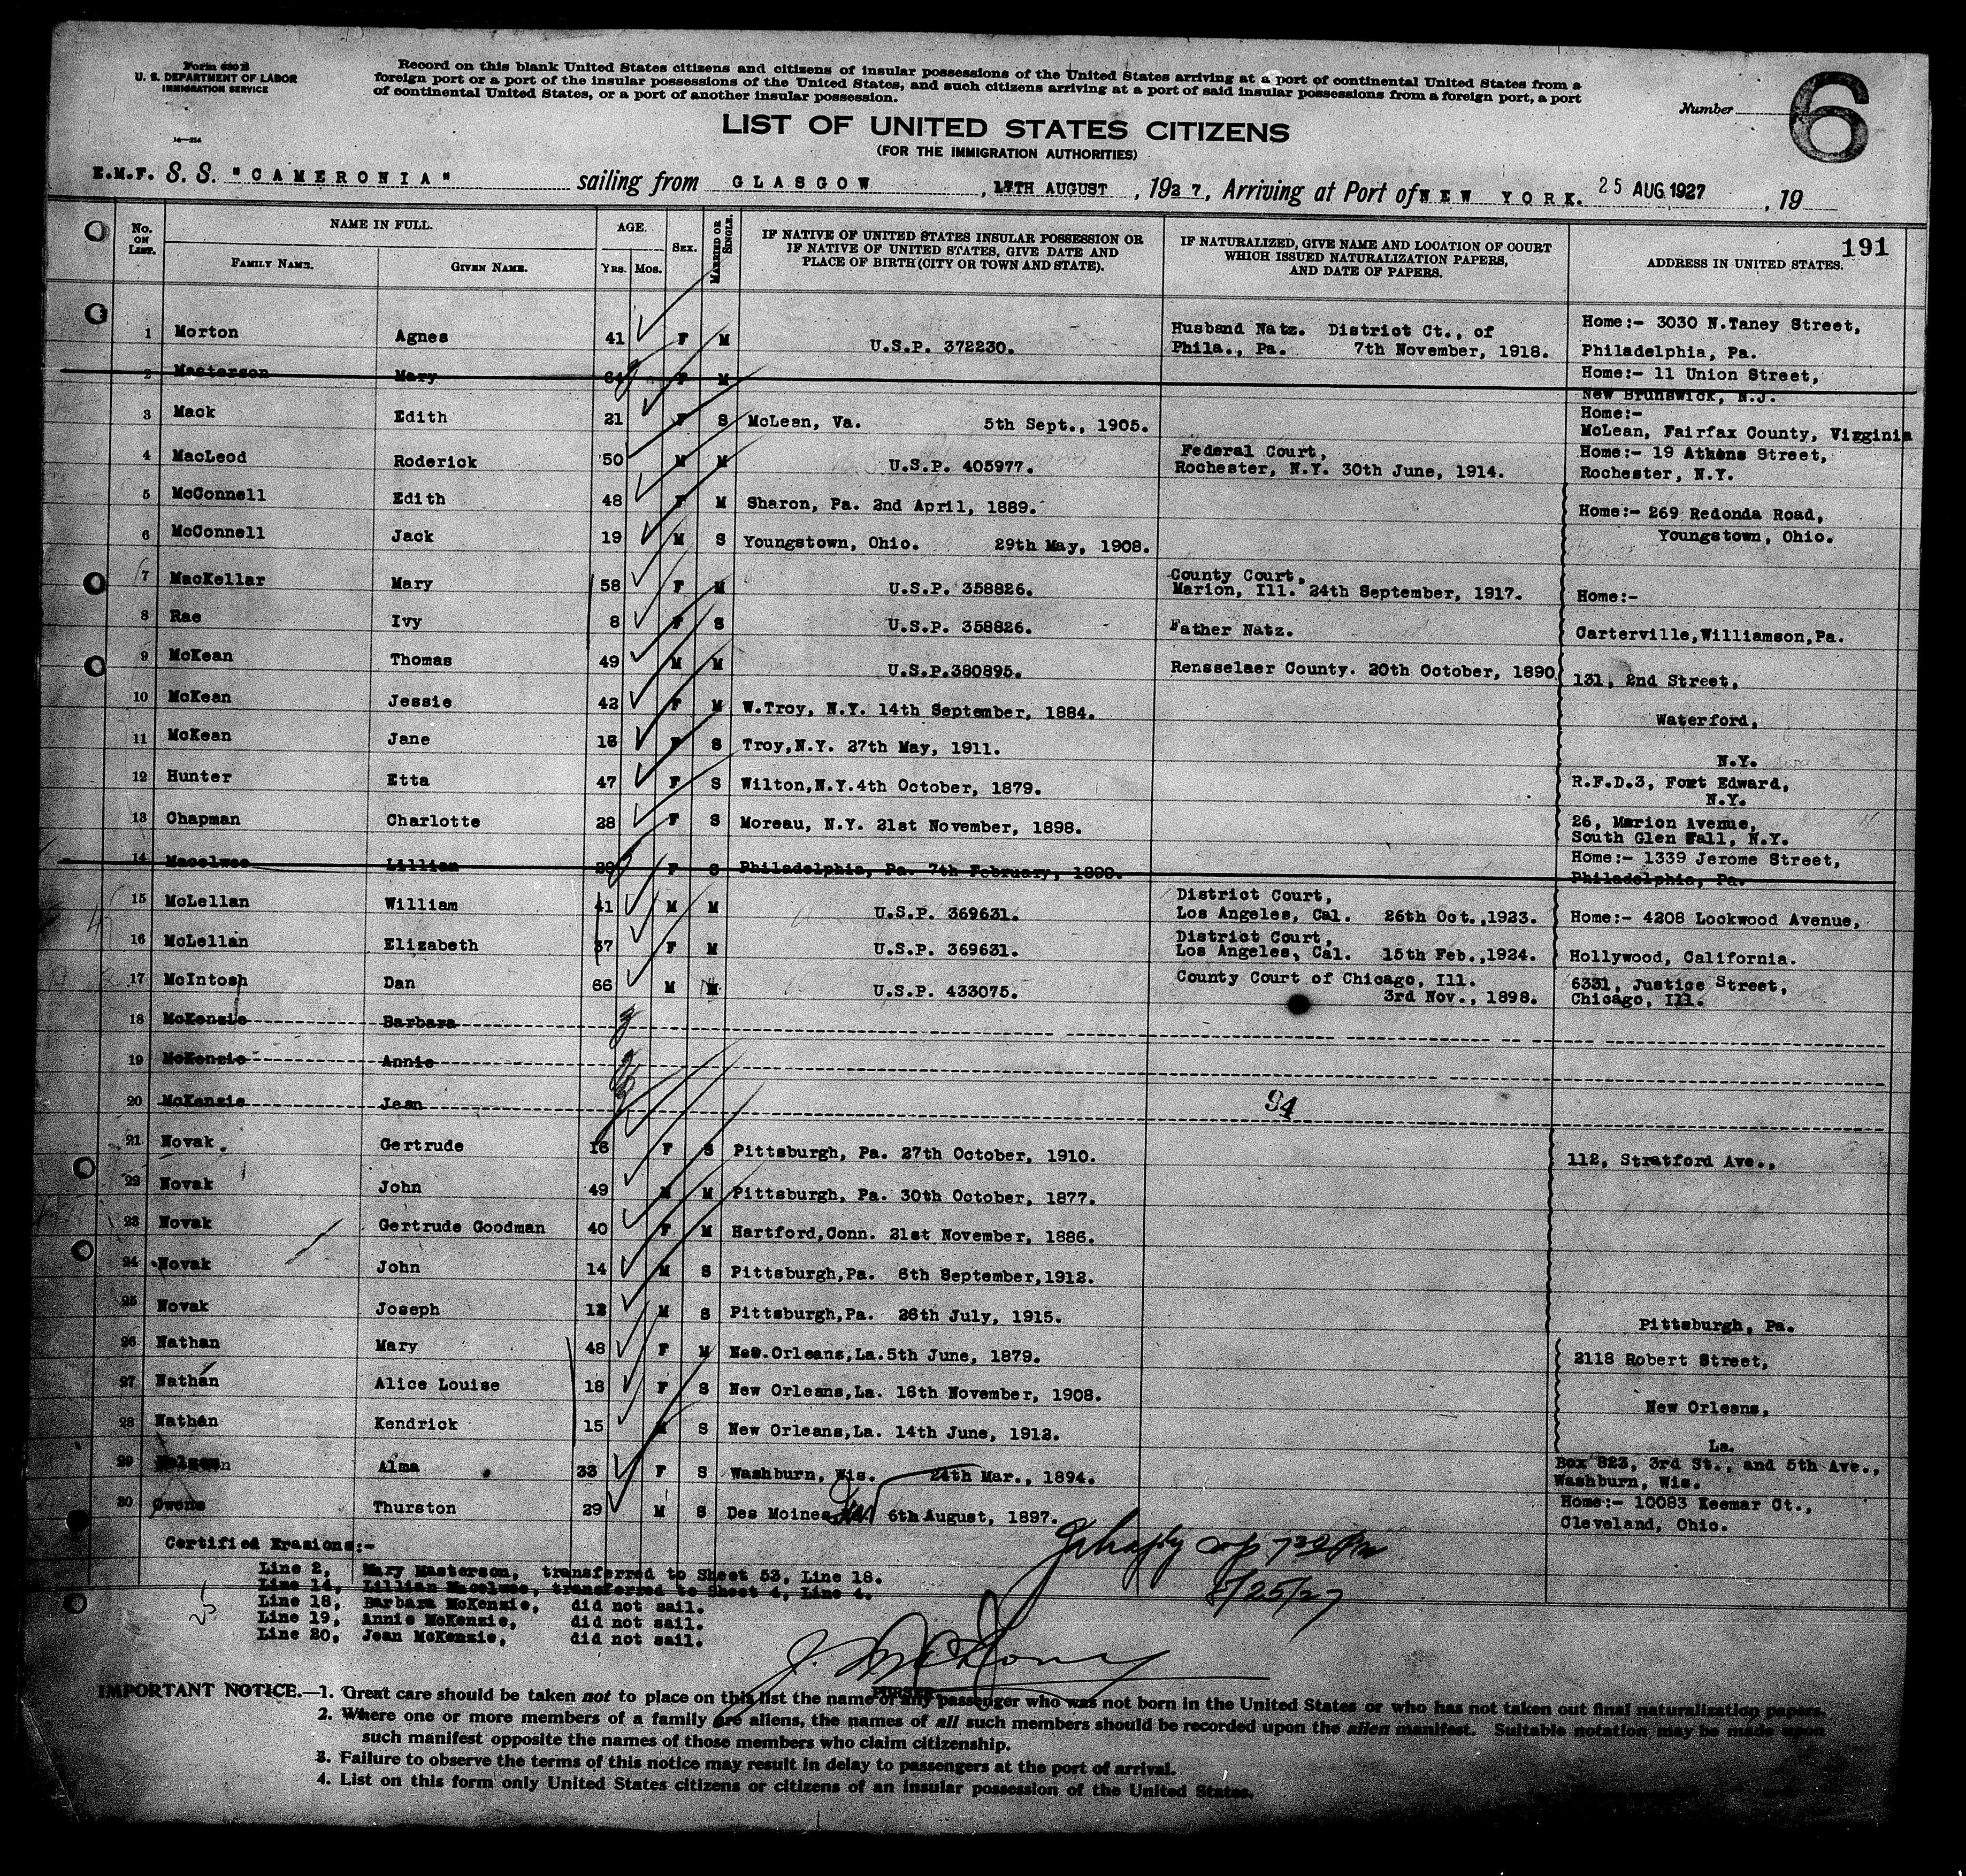 Form 630 B
U. S. DEPARTMENT OF LABOR
IMMIGRATION SERVICE
Record on this blank United States citizens and citizens of insular possessions of the United States arriving at a port of continental United States from a
foreign port or a port of the insular possessions of the United States, and such citizens arriving at a port of said insular possessions from a foreign port, a port
of continental United States, or a port of another insular possession.
Number 6
LIST OF UNITED STATES CITIZENS
(FOR THE IMMIGRATION AUTHORITIES)
E.M.F. S. S. "CAMERONIA" sailing from GLASGOW, 17TH AUGUST, 1927, Arriving at Port of NEW YORK. 25 AUG 1927, 19
191
No. ON LIST. NAME IN FULL. FAMILY NAME. GIVEN NAME. AGE. YRS. MOS. SEX. MARRIED OR SINGLE. IF NATIVE OF UNITED STATES INSULAR POSSESSION OR IF NATIVE OF UNITED STATES, GIVE DATE AND PLACE OF BIRTH (CITY OR TOWN AND STATE). IF NATURALIZED, GIVE NAME AND LOCATION OF COURT WHICH ISSUED NATURALIZATION PAPERS, AND DATE OF PAPERS. ADDRESS IN UNITED STATES.
1 Morton Agnes 41 F M U.S.P. 372230. Husband Natz. District Ct., of Phila., Pa. 7th November, 1918. Home:- 3030 N.Taney Street, Philadelphia, Pa.
2 Masterson Mary F M Home:- 11 Union Street, New Brunswick, N.J.
3 Mack Edith 21 F S McLean, Va. 5th Sept., 1905. Home:- McLean, Fairfax County, Virginia
4 MacLeod Roderick 50 M M U.S.P. 405977. Federal Court, Rochester, N.Y. 30th June, 1914. Home:- 19 Athens Street, Rochester, N.Y.
5 McConnell Edith 48 F M Sharon, Pa. 2nd April, 1889. Home:- 269 Redonda Road,
6 McConnell Jack 19 M S Youngstown, Ohio. 29th May, 1908. Youngstown, Ohio.
7 MacKellar Mary 58 F M U.S.P. 358826. County Court, Marion, Ill. 24th September, 1917. Home:-
8 Rae Ivy 8 F S U.S.P. 358826. Father Natz. Carterville,Williamson,Pa.
9 McKean Thomas 49 M M U.S.P.380895. Rensselaer County. 20th October, 1890 131, 2nd Street,
10 McKean Jessie 42 F M W.Troy, N.Y. 14th September, 1884. Waterford,
11 McKean Jane 16 F S Troy,N.Y. 27th May, 1911. N.Y.
12 Hunter Etta 47 F S Wilton,N.Y.4th October, 1879. R.F.D.3, Fort Edward, N.Y.
13 Chapman Charlotte 28 F S Moreau, N.Y. 21st November, 1898. 26, Marion Avenue, South Glen Fall, N.Y.
14 Macelwee Lillian F S Philadelphia, Pa. 7th February, Home:- 1339 Jerome Street, Philadelphia, Pa.
15 McLellan William 41 M M U.S.P. 369631. District Court, Los Angeles, Cal. 26th Oct.,1923. Home:- 4208 Lockwood Avenue,
16 McLellan Elizabeth 37 F M U.S.P. 369631. District Court, Los Angeles, Cal. 15th Feb.,1924. Hollywood, California.
17 McIntosh Dan 66 M M U.S.P. 433075. County Court of Chicago, Ill. 3rd Nov., 1898. 6331, Justice Street, Chicago, Ill.
18 McKenzie Barbara
19 McKenzie Annie
20 McKenzie Jean 94
21 Novak Gertrude 16 F S Pittsburgh, Pa. 27th October, 1910. 112, Stratford Ave.,
22 Novak John 49 M M Pittsburgh, Pa. 30th October, 1877.
23 Novak Gertrude Goodman 40 F M Hartford,Conn. 21st November, 1886.
24 Novak John 14 M S Pittsburgh,Pa. 6th September,1912.
25 Novak Joseph 12 M S Pittsburgh,Pa. 26th July, 1915. Pittsburgh, Pa.
26 Nathan Mary 48 F M New.Orleans,La.5th June, 1879. 2118 Robert Street,
27 Nathan Alice Louise 18 F S New Orleans,La. 16th November, 1908. New Orleans,
28 Nathan Kendrick 15 M S New Orleans,La. 14th June, 1912. La.
29 Alma 33 F S Washburn, Wis. 24th Mar., 1894. Box 823, 3rd St., and 5th Ave., Washburn, Wis.
30 Owens Thurston 29 M S Des Moines 6th August, 1897. Home:- 10083 Keemar Ct., Cleveland, Ohio.
Certified Erasions:-
Line 2, Mary Masterson, transferred to Sheet 53, Line 18.
Line 14, Lillian Macelwee, transferred to Sheet 4, Line 4.
Line 18, Barbara McKenzie, did not sail.
Line 19, Annie McKenzie, did not sail.
Line 20, Jean McKenzie, did not sail.
25
8/25/27
PURSER
IMPORTANT NOTICE.—1. Great care should be taken not to place on this list the name of any passenger who was not born in the United States or who has not taken out final naturalization papers.
2. Where one or more members of a family are aliens, the names of all such members should be recorded upon the alien manifest. Suitable notation may be made upon
such manifest opposite the names of those members who claim citizenship.
3. Failure to observe the terms of this notice may result in delay to passengers at the port of arrival.
4. List on this form only United States citizens or citizens of an insular possession of the United States.